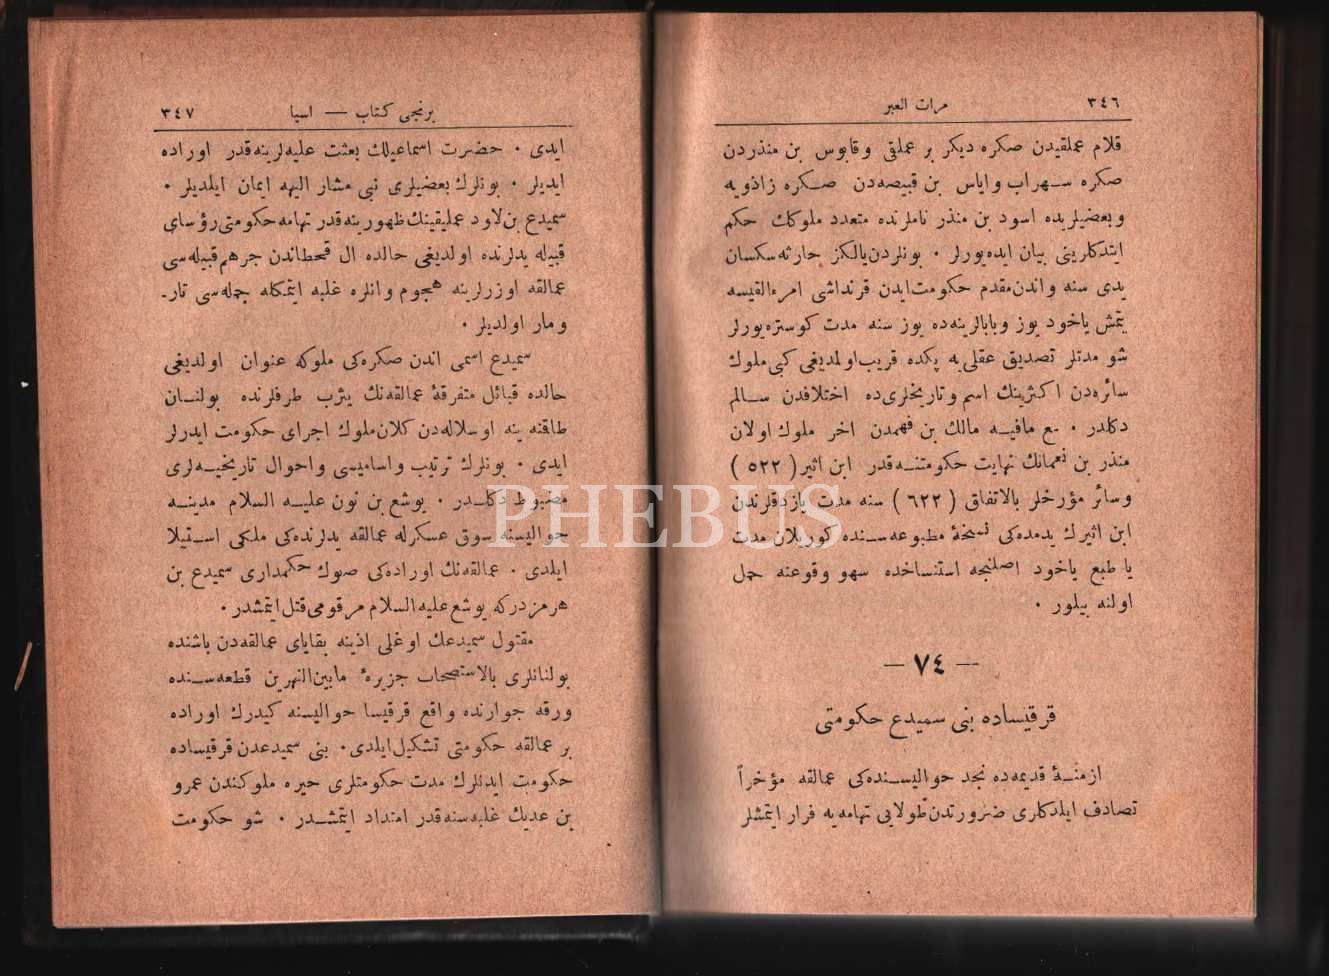 ٣٤٦
مرات العبر
قلام عملقیدن صكره دیكر بر عملقی وقابوس بن منذردن
صكره سهراب وایاس بن قبیصه‌دن صكره زاذویه
وبعضیلریده اسود بن منذر ناملرنده متعدد ملوكك حكم
ایتدكلرینی بیان ایده‌یورلر . بونلردن یالكز حارثه سكسان
یدی سنه واندن مقدم حكومت ایدن قرنداشی امرءالقیسه
یتمش یاخود یوز وبابالرینه‌ده یوز سنه مدت كوستره‌یورلر
شو مدتلر تصدیق عقلی‌یه پكده قریب اولمدیغی كبی ملوك
سائره‌دن اكثرینك اسم وتاریخلری‌ده اختلافدن سالم
دكلدر . مع مافیه مالك بن فهمدن اخر ملوك اولان
منذر بن نعمانك نهایت حكومتنه‌قدر ابن اثیر ( ٥٢٢ )
وسائر مؤرخلر بالاتفاق ( ٦٢٢ ) سنه مدت یازدقلرندن
ابن اثیرك یدمده‌كی نسخهٔ مطبوعه‌سنده كوریلان مدت
یا طبع یاخود اصلنجه استنساخده سهو وقوعنه حمل
اولنه بیلور .
— ٧٤ —
قرقیساده بنی سمیدع حكومتی
ازمنهٔ قدیمه‌ده نجد حوالیسنده‌كی عمالقه مؤخراً
تصادف ایلدكلری ضرورتدن طولایی تهامه‌یه فرار ایتمشلر
برنجی كتاب — اسیا
٣٤٧
ایدی . حضرت اسماعیلك بعثت علیه‌لرینه‌قدر اوراده
ایدیلر . بونلرك بعضیلری نبی مشار الیهه ایمان ایلدیلر .
سمیدع بن لاود عملیقینك ظهورینه‌قدر تهامه حكومتی رؤسای
قبیله یدلرنده اولدیغی حالده ال قحطاندن جرهم قبیله‌سی
عمالقه اوزرلرینه هجوم وانلره غلبه ایتمكله جمله‌سی تار-
ومار اولدیلر .
سمیدع اسمی اندن صكره‌كی ملوكه عنوان اولدیغی
حالده قبائل متفرقهٔ عمالقه‌نك یثرب طرفلرنده بولنان
طاقنه ینه اوسلاله‌دن كلان ملوك اجرای حكومت ایدرلر
ایدی . بونلرك ترتیب واسامیسی واحوال تاریخیه‌لری
مضبوط دكلدر . یوشع بن نون علیه السلام مدینه
حوالیسنه سوق عسكرله عمالقه یدلرنده‌كی ملكی استیلا
ایلدی . عمالقه‌نك اوراده‌كی صوك حكمداری سمیدع بن
هرمزدركه یوشع علیه‌السلام مرقومی قتل ایتمشدر .
مقتول سمیدعك اوغلی اذینه بقایای عمالقه‌دن باشنده
بولنانلری بالاستصحاب جزیرهٔ مابین‌النهرین قطعه‌سنده
ورقه جوارنده واقع قرقیسا حوالیسنه كیدرك اوراده
بر عمالقه حكومتی تشكیل ایلدی . بنی سمیدعدن قرقیساده
حكومت ایدنلرك مدت حكومتلری حیره ملوكندن عمرو
بن عدینك غلبه‌سنه‌قدر امتداد ایتمشدر . شو حكومت
PHEBUS